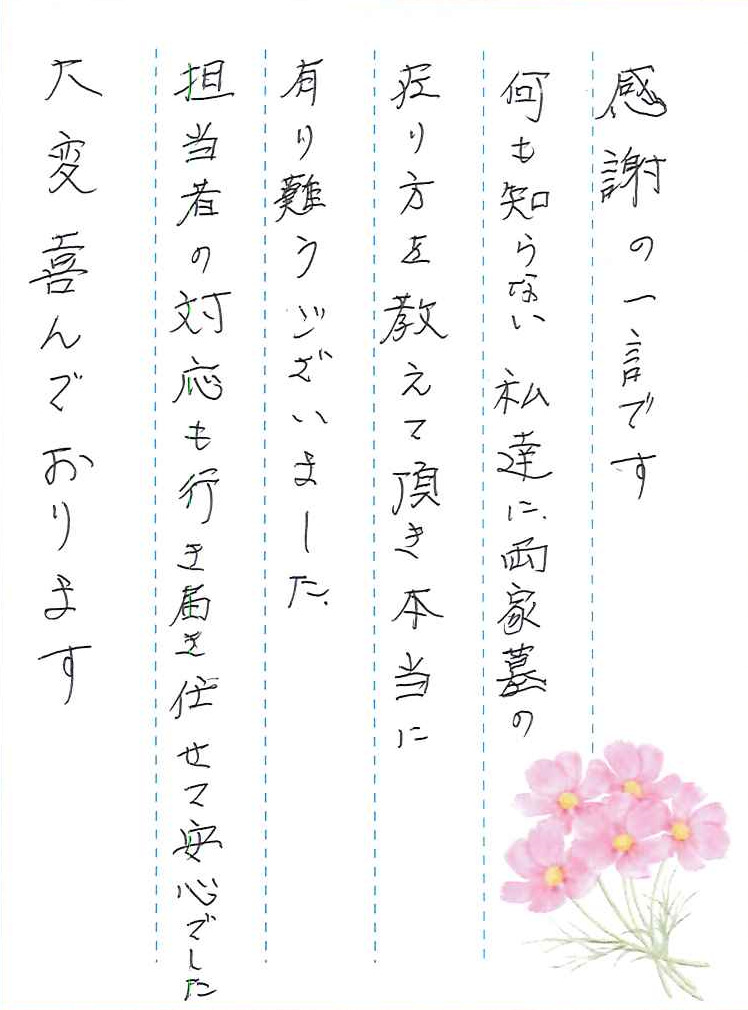 感謝の一言です
何も知らない 私達に両家墓の
在り方を教えて頂き本当に
有り難うございました
担当者の対応も行き届き任せて安心でした
大変喜んでおります